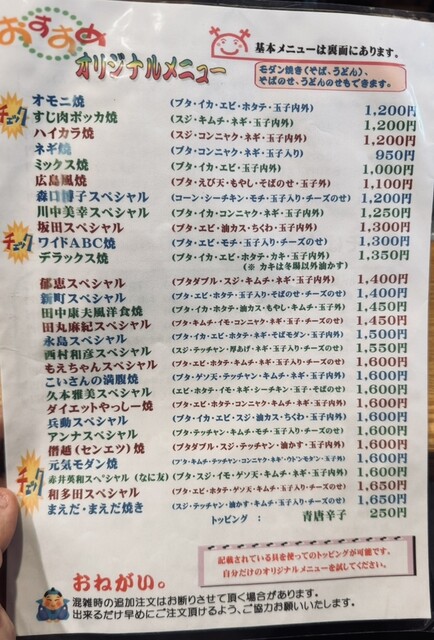 おすすめ
オリジナルメニュー
基本メニューは裏面にあります。
モダン焼き(そば、うどん)、
そばのせ、うどんのせもできます。
チェック
オモニ焼 (ブタ・イカ・エビ・ホタテ・玉子内外) 1,200円
すじ肉ポッカ焼 (スジ・キムチ・ネギ・玉子内外) 1,200円
ハイカラ焼 (スジ・コンニャク・ネギ・玉子内外) 1,200円
ネギ焼 (ブタ・コンニャク・ネギ・玉子入り) 950円
ミックス焼 (ブタ・イカ・エビ・玉子内外) 1,000円
広島風焼 (ブタ・えび天・もやし・そばのせ・玉子外) 1,100円
森口博子スペシャル (コーン・シーチキン・モチ・玉子入り・チーズのせ) 1,200円
川中美幸スペシャル (ブタ・イカ・コンニャク・ネギ・玉子内外) 1,250円
坂田スペシャル (ブタ・エビ・油カス・ちくわ・玉子内外) 1,300円
チェック
ワイドABC焼 (ブタ・エビ・モチ・玉子入り・チーズのせ) 1,300円
デラックス焼 (ブタ・イカ・エビ・ホタテ・カキ・玉子内外) 1,350円
(※ カキは冬場以外油かす)
郁恵スペシャル (ブタダブル・スジ・キムチ・ネギ・玉子内外) 1,400円
新町スペシャル (ブタ・エビ・ホタテ・玉子入り・そばのせ・チーズのせ) 1,400円
田中康夫風洋食焼 (ブタ・イカ・ホタテ・油カス・もやし・キムチ・玉子外) 1,450円
田丸麻紀スペシャル (ブタ・キムチ・イモ・コンニャク・ネギ・玉子・チーズのせ) 1,450円
永島スペシャル (ブタ・イカ・エビ・ホタテ・ネギ・そばモダン・玉子内外) 1,500円
西村和彦スペシャル (スジ・テッチャン・厚あげ・ネギ・玉子内外・チーズのせ) 1,550円
もえちゃんスペシャル (ブタ・エビ・ホタテ・キムチ・ネギ・玉子内外・チーズのせ) 1,600円
こいさんの満腹焼 (ブタ・ゲソ天・テッチャン・キムチ・ネギ・玉子内外) 1,600円
久本雅美スペシャル (エビ・ホタテ・イモ・ネギ・シーチキン・玉子・そばのせ) 1,600円
ダイエットやっしー焼 (ブタ・エビ・ホタテ・コンニャク・キムチ・ネギ・玉子内外) 1,600円
兵動スペシャル (ブタ・イカ・エビ・スジ・油カス・ちくわ・玉子内外) 1,600円
アンナスペシャル (ブタ・テッチャン・キムチ・モチ・ネギ・玉子内外・チーズのせ) 1,600円
僭越(センエツ)焼 (ブタダブル・スジ・テッチャン・油かす・玉子内外) 1,600円
チェック
元気モダン焼 (ブタ・キムチ・テッチャン・コンニャク・ネギ・ウドンモダン・玉子内外) 1,600円
赤井英和スペシャル(なに友) (ブタ・スジ・イモ・ゲソ天・キムチ・ネギ・玉子内外) 1,600円
和多田スペシャル (ブタ・エビ・ホタテ・ゲソ天・キムチ・玉子入り・チーズのせ) 1,650円
まえだ・まえだ焼き (スジ・テッチャン・油かす・キムチ・玉子入り・チーズのせ) 1,650円
トッピング : 青唐辛子 250円
記載されている具を使ってのトッピングが可能です。
自分だけのオリジナルメニューを試してください。
おねがい。
混雑時の追加注文はお断りさせて頂く場合があります。
出来るだけ早めにご注文頂けるよう、ご協力お願いいたします。